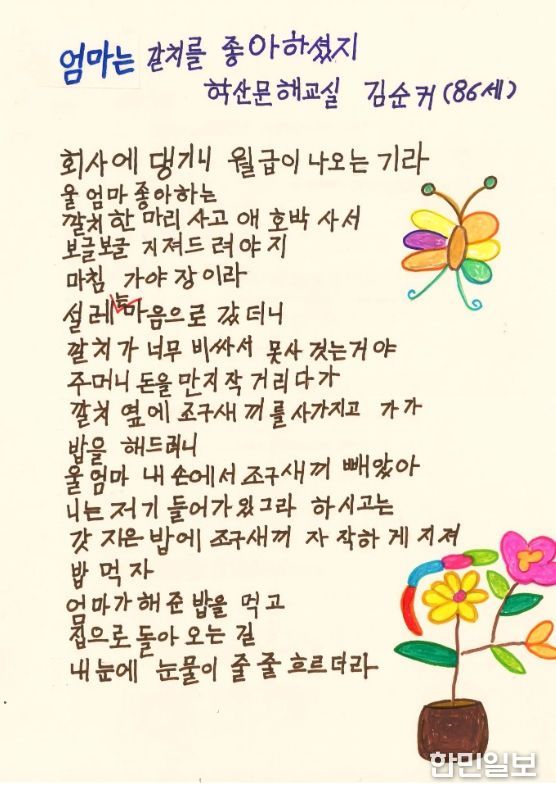 엄마는 갈치를 좋아하셨지
학산문해교실 김순커(86세)
회사에 댕기니 월급이 나오는 기라
울 엄마 좋아하는
깔치 한 마리 사고 애호박 사서
보글보글 지져드려야지
마침 가야장이라
설레는 마음으로 갔더니
깔치가 너무 비싸서 못사 것는거야
주머니 돈을 만지작 거리다가
깔쳐 옆에 조구새끼를 사가지고 가가
밥을 해드려니
울엄마 내 손에서 조구새끼 빼앗아
니는 저기 들어가 있그라 하시고는
갓 지은 밥에 조구새끼 자작하게 지져
밥 먹자
엄마가 해 준 밥을 먹고
집으로 돌아 오는 길
내 눈에 눈물이 줄 줄 흐르더라
한민일보